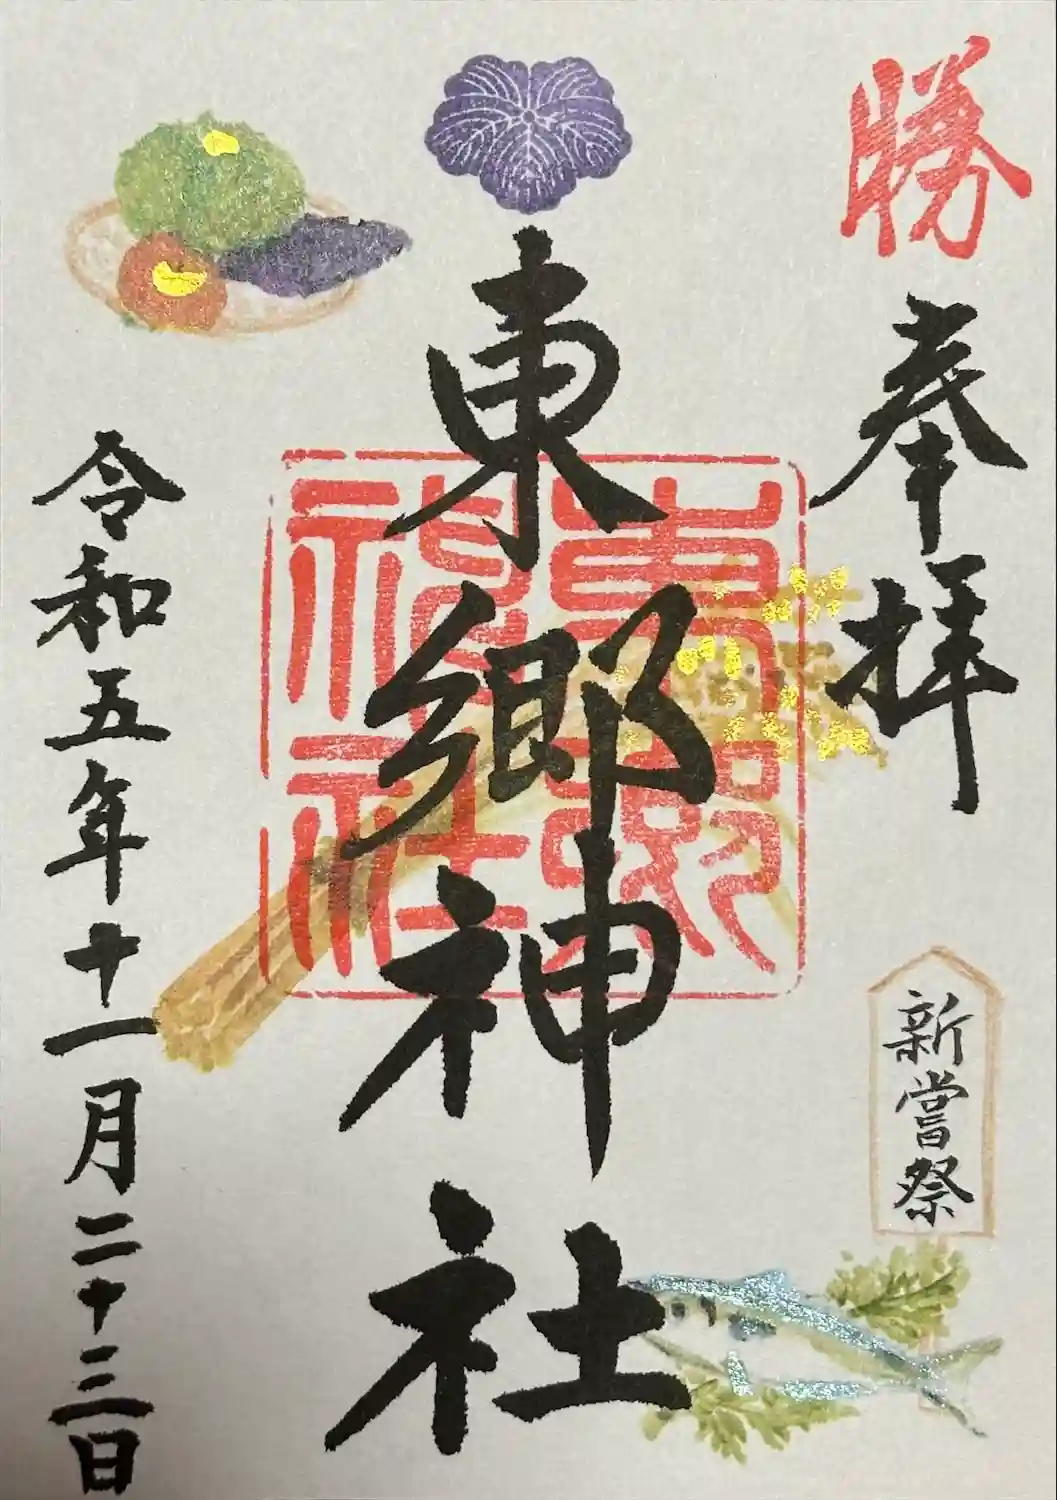 勝
奉拝
東郷神社
東郷神社
新嘗祭
令和五年十一月二十三日